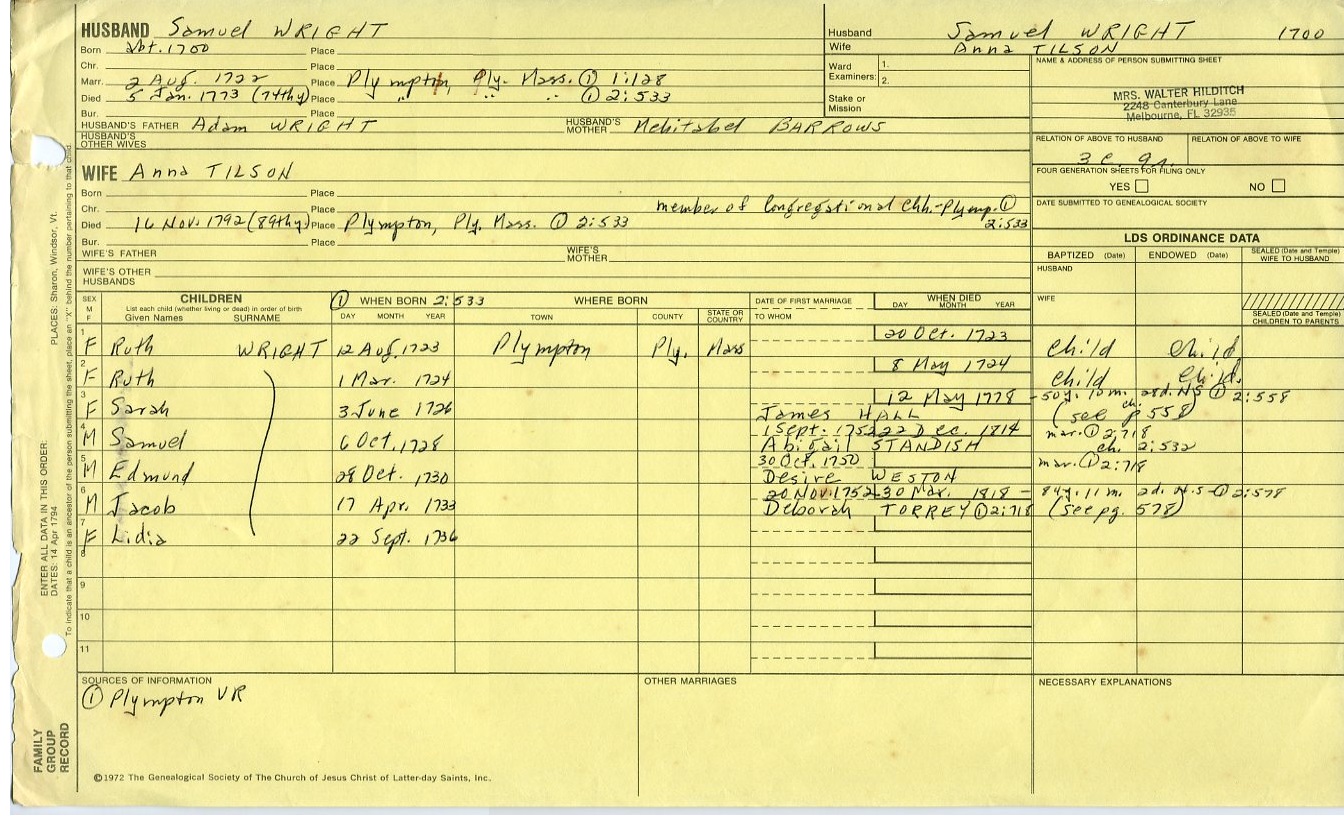 HUSBAND Samuel WRIGHT
Born Abt. 1700 Place
Chr. Place
Marr. 2 Aug. 1722 Place Plympton, Ply. Mass. ① 1:128
Died 5 Jan. 1773 (74thy) Place " " " ① 2:533
Bur. Place
HUSBAND'S FATHER Adam WRIGHT HUSBAND'S MOTHER Mehitabel BARROWS
HUSBAND'S OTHER WIVES
Husband Samuel WRIGHT 1700
Wife Anna TILSON
Ward Examiners: 1.
2.
Stake or Mission
NAME & ADDRESS OF PERSON SUBMITTING SHEET
MRS. WALTER HILDITCH
2248 Canterbury Lane
Melbourne, FL 32935
RELATION OF ABOVE TO HUSBAND RELATION OF ABOVE TO WIFE
3 c. gr.
FOUR GENERATION SHEETS FOR FILING ONLY
YES NO
DATE SUBMITTED TO GENEALOGICAL SOCIETY
WIFE Anna TILSON
Born Place
Chr. Place member of Congregational Chh.-Plymp. ①
Died 16 Nov. 1792 (89thy) Place Plympton, Ply. Mass. ① 2:533 2:533
Bur. Place
WIFE'S FATHER WIFE'S MOTHER
WIFE'S OTHER HUSBANDS
LDS ORDINANCE DATA
BAPTIZED (Date) ENDOWED (Date) SEALED (Date and Temple) WIFE TO HUSBAND
HUSBAND
WIFE
SEALED (Date and Temple) CHILDREN TO PARENTS
SEX M F CHILDREN ① WHEN BORN 2:533 WHERE BORN DATE OF FIRST MARRIAGE WHEN DIED
List each child (whether living or dead) in order of birth
Given Names SURNAME DAY MONTH YEAR TOWN COUNTY STATE OR COUNTRY TO WHOM DAY MONTH YEAR
1 F Ruth WRIGHT 12 Aug. 1723 Plympton Ply. Mass 20 Oct. 1723 child child
2 F Ruth 1 Mar. 1724 8 May 1724 child child
3 F Sarah 3 June 1726 12 May 1778 - 50y. 10 m. 28d. NS ① 2:558
James HALL (see ch. p 558)
4 M Samuel 6 Oct. 1728 1 Sept. 1752 22 Dec. 1814 mar. ① 2:718
Abigail STANDISH ch. 2:532
5 M Edmund 28 Oct. 1730 30 Oct. 1750 mar. ① 2:718
Desire WESTON
6 M Jacob 17 Apr. 1733 20 Nov. 1752 30 Mar. 1818 - 84y. 11 m. 2d. N.S - ① 2:578
Deborah TORREY ① 2:718 (see pg. 578)
7 F Lidia 22 Sept. 1736
8
9
10
11
SOURCES OF INFORMATION
① Plympton VR
OTHER MARRIAGES
NECESSARY EXPLANATIONS
©1972 The Genealogical Society of The Church of Jesus Christ of Latter-day Saints, Inc.
FAMILY GROUP RECORD
ENTER ALL DATA IN THIS ORDER:
DATES: 14 Apr 1794 PLACES: Sharon, Windsor, Vt.
To indicate that a child is an ancestor of the person submitting the sheet, place an "X" behind the number pertaining to that child.